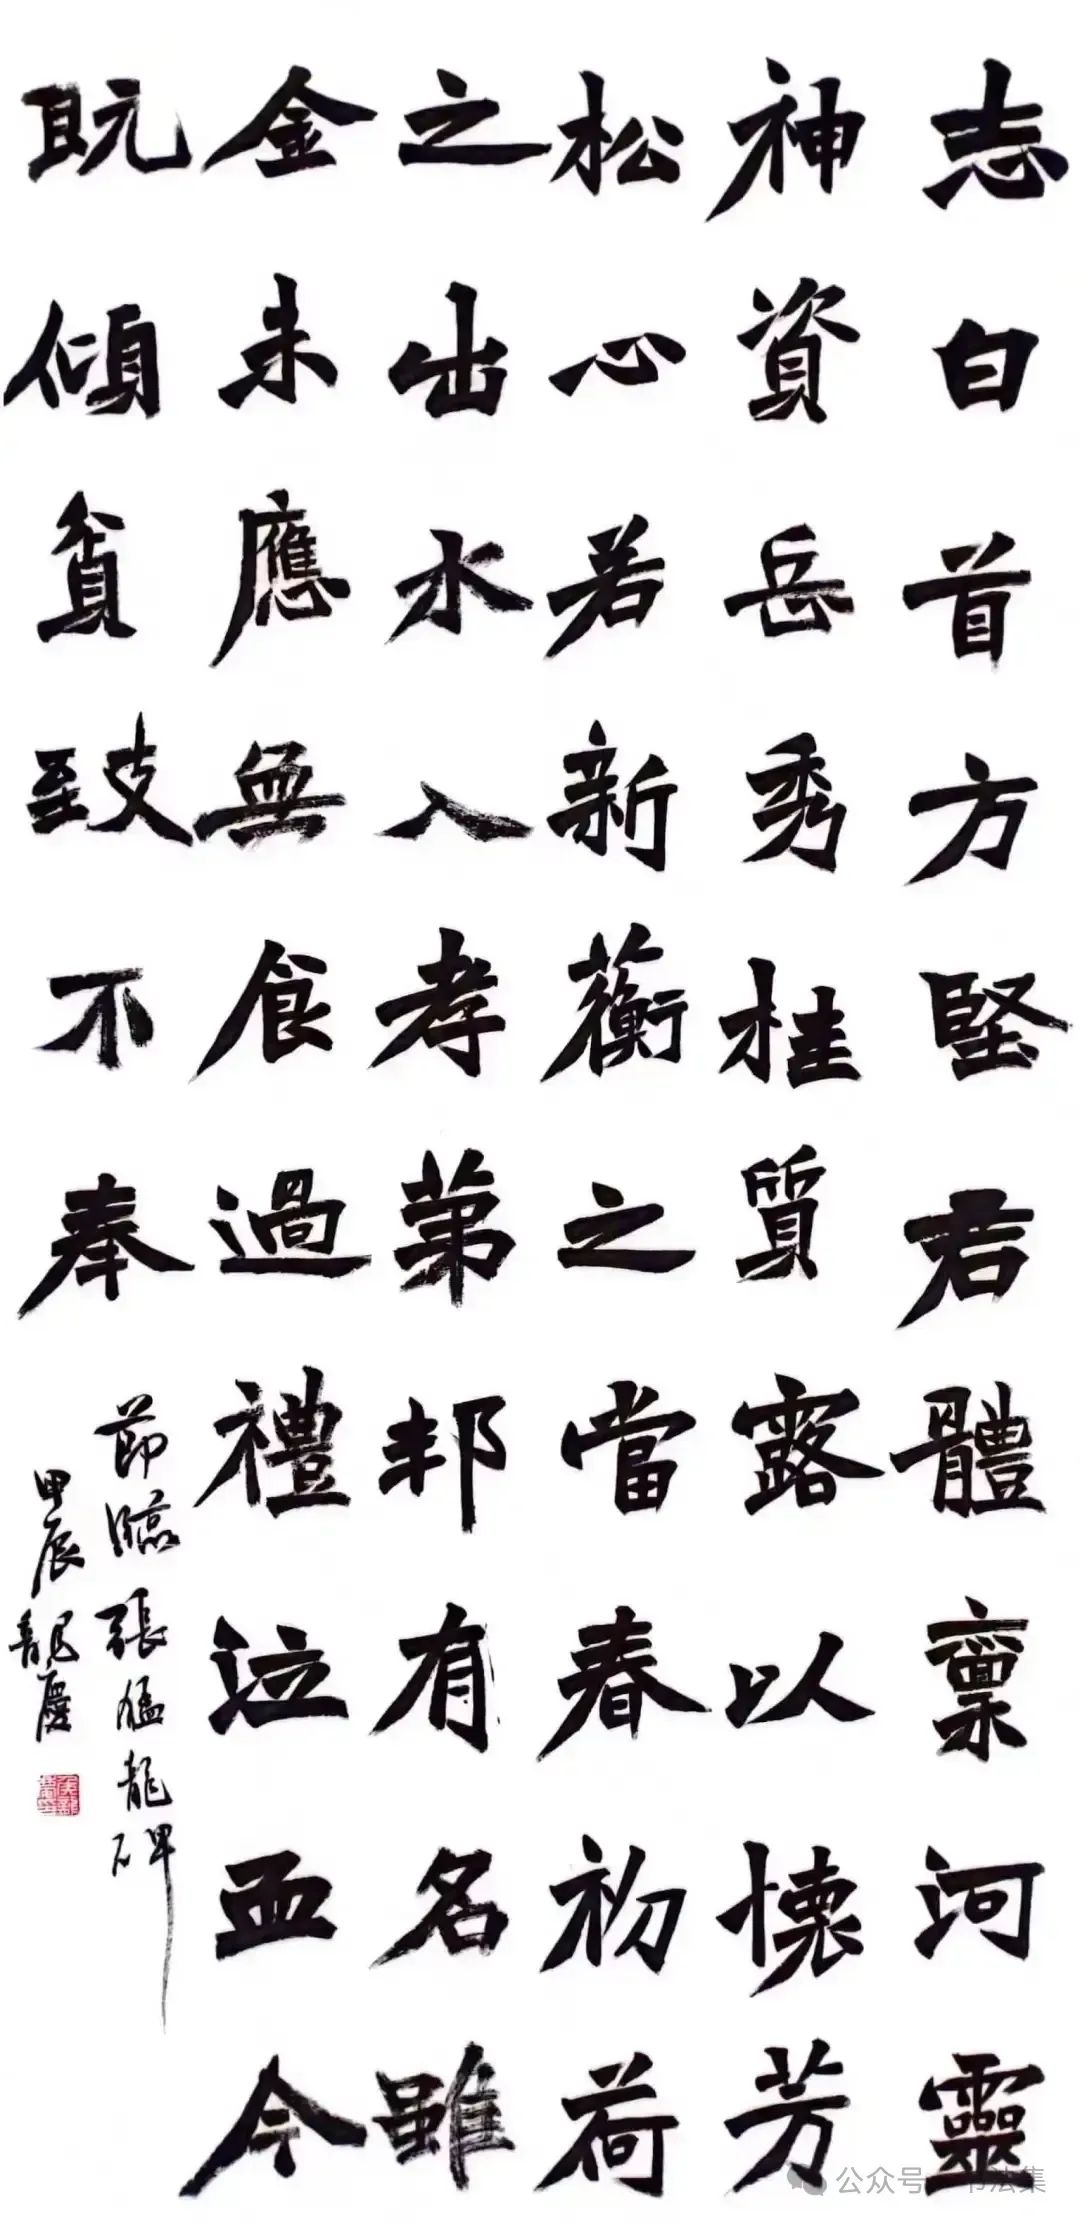 志白首方堅君體稟河靈
神資岳秀桂質露以懷芳
松心若新蘅之當春初荷
之出水入孝苐邦有名雖
金未應無食過禮泣血今
既傾貧致不奉
節臨張猛龍碑
甲辰龍慶
公众号 书法集